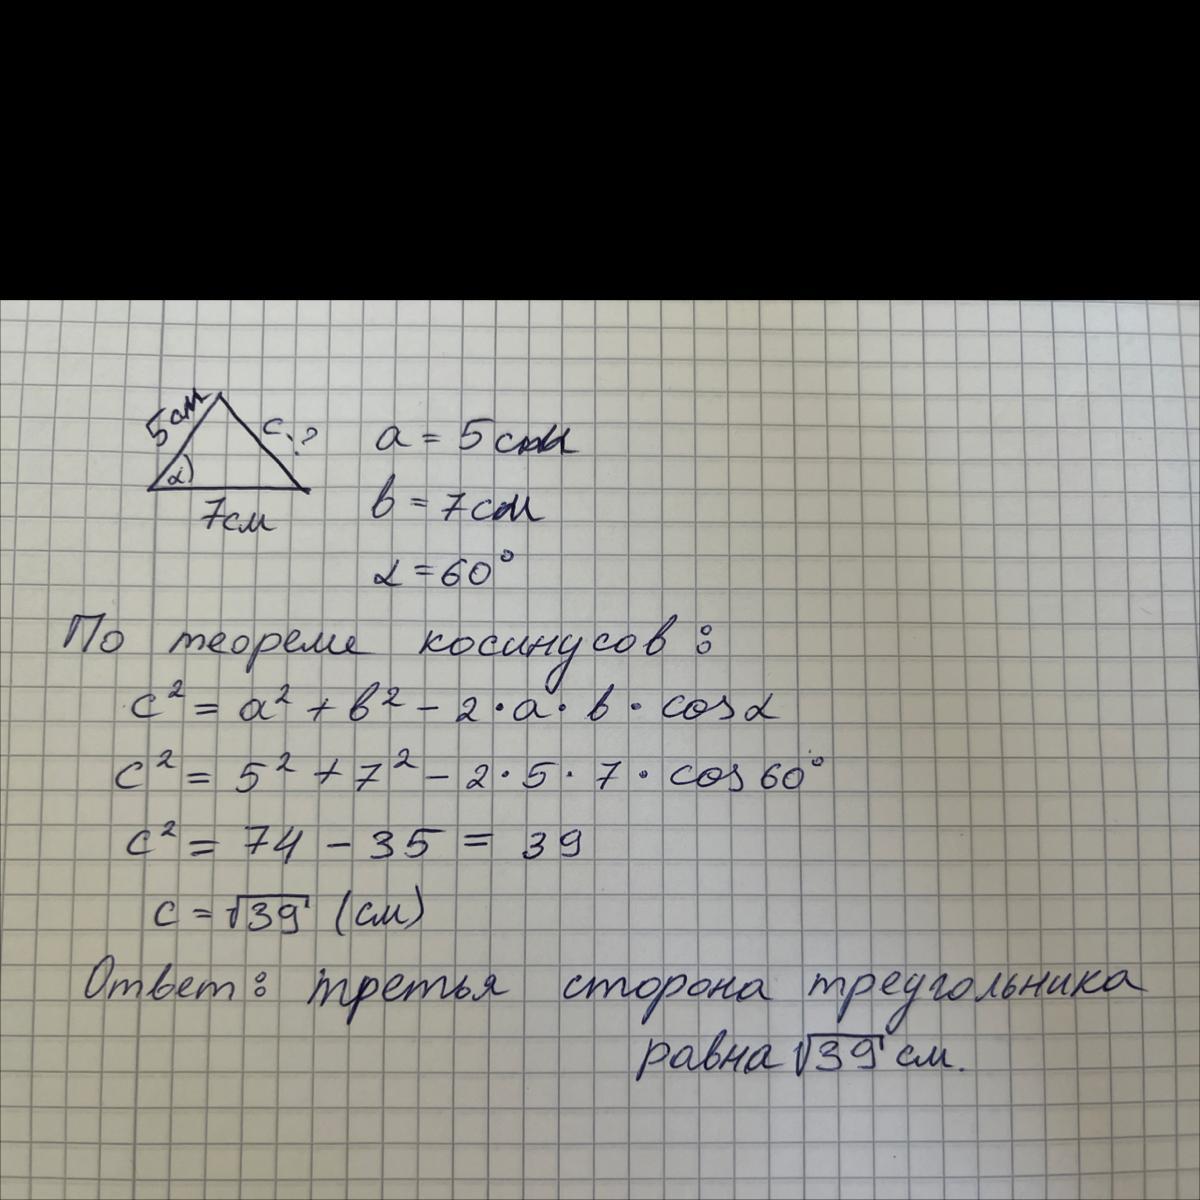 5см
c - ?
α
7см
a = 5см
b = 7см
α = 60°
По теореме косинусов:
c² = a² + b² - 2 · a · b · cos α
c² = 5² + 7² - 2 · 5 · 7 · cos 60°
c² = 74 - 35 = 39
c = √39 (см)
Ответ: третья сторона треугольника
равна √39 см.